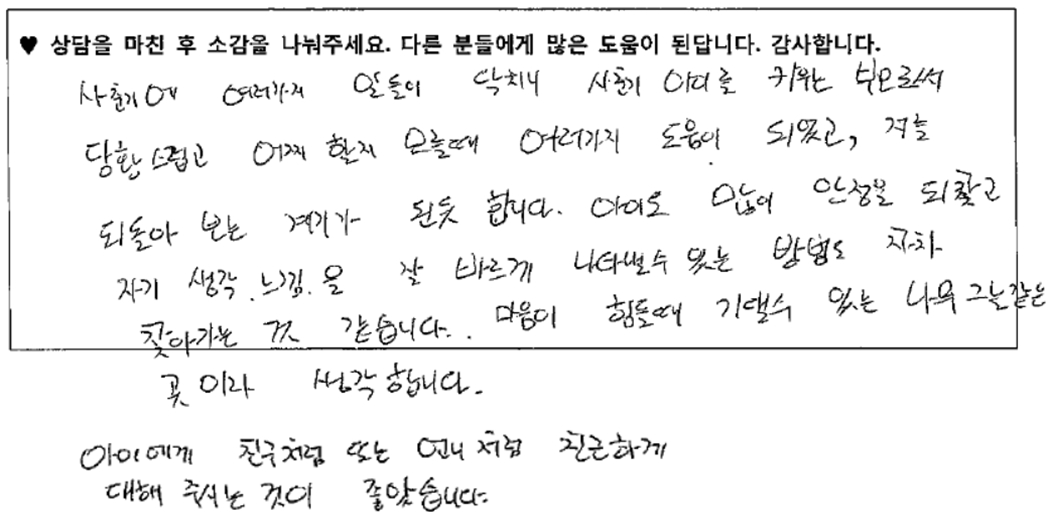 ♥ 상담을 마친 후 소감을 나눠주세요. 다른 분들에게 많은 도움이 된답니다. 감사합니다.
사춘기에 여러가지 일들이 닥치니 사춘기 아이를 키우는 부모로써
당황스럽고 어찌 할지 모를때 여러가지 도움이 되었고, 저를
되돌아 보는 계기가 된듯 합니다. 아이도 많이 안정을 되찾고
자기 생각. 느낌.을 잘 바르게 나타낼수 있는 방법도 차차
찾아가는 것 같습니다.. 마음이 힘들때 기댈수 있는 나무그늘같은
곳이라 생각합니다.
아이에게 친구처럼 또는 언니처럼 친근하게
대해 주시는 것이 좋았습니다.